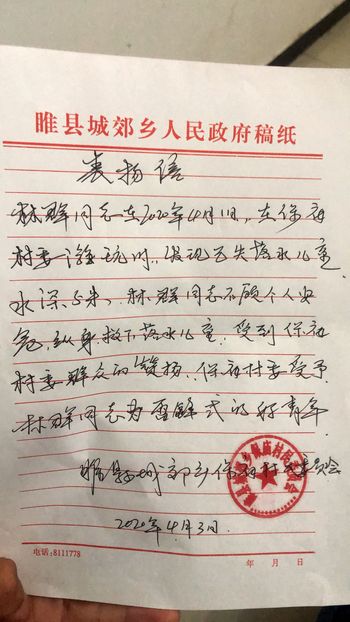 睢县城郊乡人民政府稿纸
表扬信
林辉同志在2020年4月1日,在保庙
村委游玩时,发现不失落水儿童,
水深2米,林辉同志不顾个人安
危,纵身救下落水儿童,受到保庙
村委群众的赞扬,保庙村委授予
林辉同志为雷锋式的好青年
睢县城郊乡保庙村委员会
2020年4月3日
电话:8111778
年 月 日